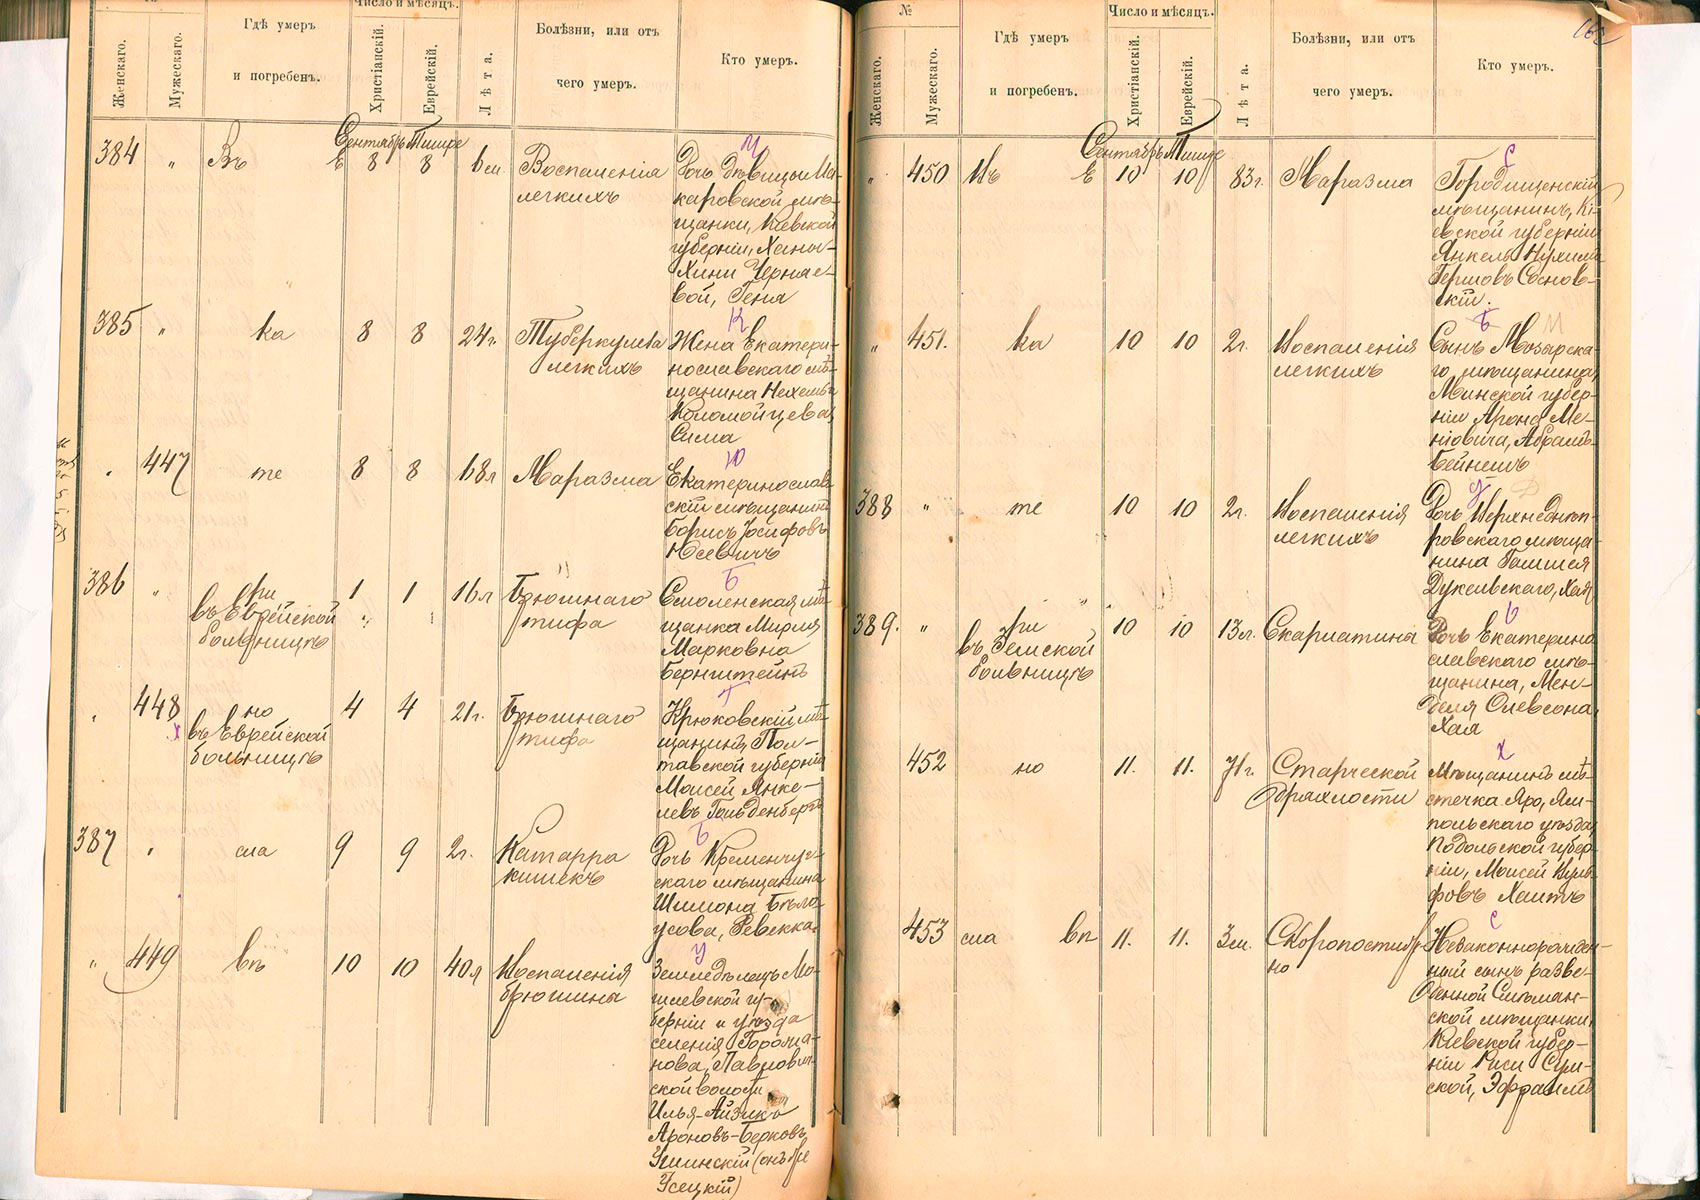 Женскаго.
Мужескаго.
Гдѣ умеръ
и погребенъ.
Число и мѣсяцъ.
Христіанскій.
Еврейскій.
Лѣта.
Болѣзни, или отъ
чего умеръ.
Кто умеръ.
Сентябрь Тишре
384 " Въ Е 8 8 6 м. Воспаленія
легкихъ
Дочь дѣвицы Ма-
каровской мѣ-
щанки, Кіевской
губерніи, Ханы-
Хини Черняе-
вой, Геня
385 " ка 8 8 24 г. Туберкулеза
легкихъ
Жена Екатери-
нославскаго мѣ-
щанина
Коломойцева,
Сима
" 447 те 8 8 68 л Маразма
Екатеринослав-
скій мѣщанинъ
Борисъ Іосифовъ
Юсевичъ
386 " ри 1 1 16 л Брюшнаго
въ Еврейской
больницѣ
тифа
Смоленская мѣ-
щанка Мирля
Марковна
Бернштейнъ
" 448 но 4 4 21 г. Брюшнаго
въ Еврейской
больницѣ
тифа
Крюковскій мѣ-
щанинъ, Пол-
тавской губерніи
Моисей Янке-
левъ Гольденбергъ
387 " сла 9 9 2 г. Катарра
кишекъ
Дочь Кременчуг-
скаго мѣщанина
Шимона Бѣло-
усова, Ревекка.
" 449 вѣ 10 10 40 л Воспаленія
брюшины
Земледѣлецъ Мо-
гилевской гу-
берніи и уѣзда
селенія
нова,
ской волости
Илья-Айзикъ
Ароновъ-Берковъ
(онъ же
Усецкій)
№
Женскаго.
Мужескаго.
Гдѣ умеръ
и погребенъ.
Число и мѣсяцъ.
Христіанскій.
Еврейскій.
Лѣта.
Болѣзни, или отъ
чего умеръ.
Кто умеръ.
Сентябрь Тишре
" 450 Въ Е 10 10 83 г. Маразма
Городищенскій
мѣщанинъ, Кі-
евской губерніи
Янкель Нухимъ
Гершовъ Соснов-
скій.
" 451. ка 10 10 2 г. Воспаленія
легкихъ
Сынъ Мозырска-
го мѣщанина,
Минской губер-
ніи Арона Ме-
ніовича, Абрамъ-
Бейнешъ
388 " те 10 10 2 г. Воспаленія
легкихъ
Дочь Верхнеднѣп-
ровскаго мѣща-
нина
Дукельскаго, Хая
389. " ри 10 10 13 л. Скарлатины
въ Земской
больницѣ
Дочь Екатерино
славскаго мѣ-
щанина, Мен-
деля Олевсона,
Хая
452 но 11. 11. 71 г. Старческой
дряхлости
Мѣщанинъ мѣ-
стечка Яро, Ям-
польскаго уѣзда,
Подольской губер-
ніи, Моисей Вуль-
фовъ Хаитъ
453 сла вѣ 11. 11. 3 м. Скоропостиж-
но
Незаконнорожден-
ный сынъ разве-
денной Смѣлян-
ской мѣщанки,
Кіевской губер-
ніи Риси Сум-
ской, Эфраимъ